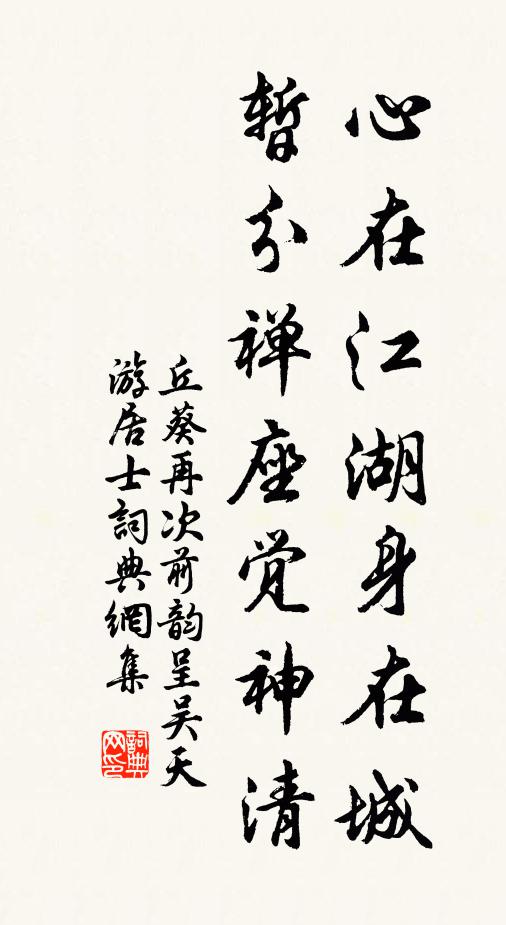 心在江湖身在城
暂分禅座觉神清
丘葵再次前韵呈吴天
游居士詞典網集
詞典
网印